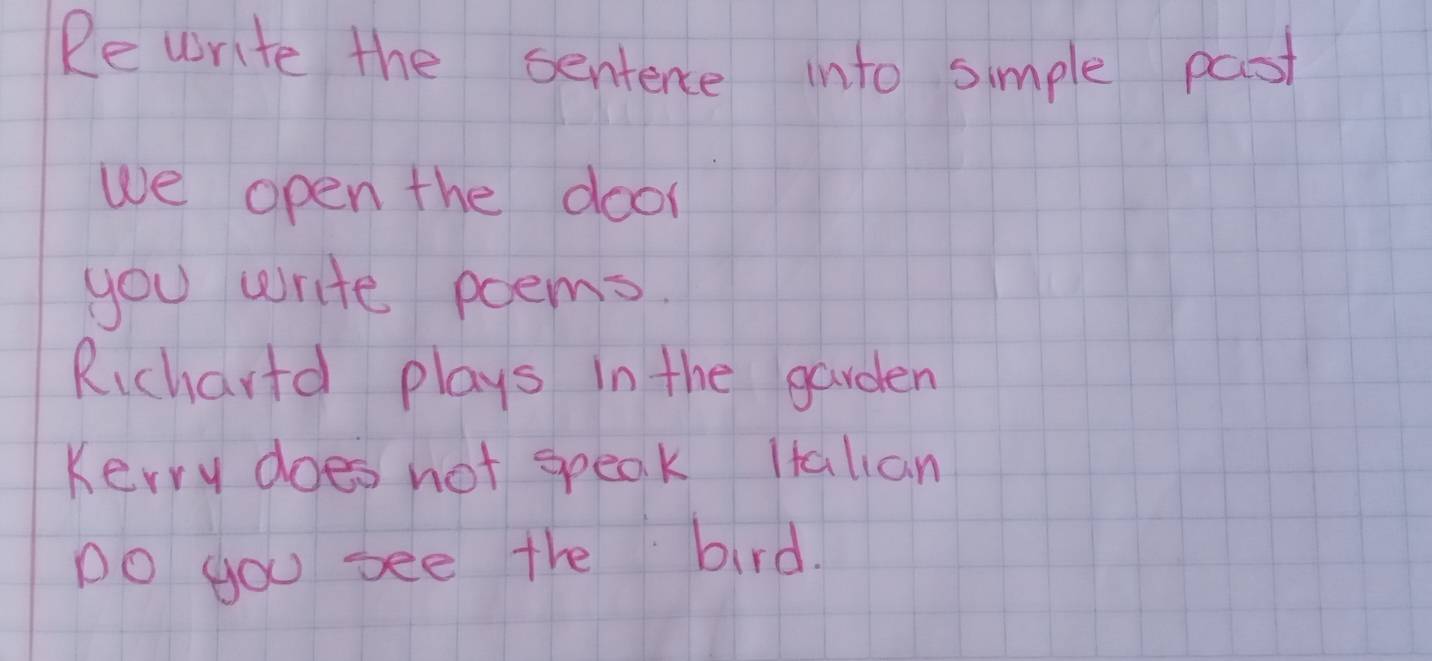 Re write the sentence into simple past
we open the door
you write poems.
Richartd plays in the garden
Kerry does not speak Italian
Do you see the bird.